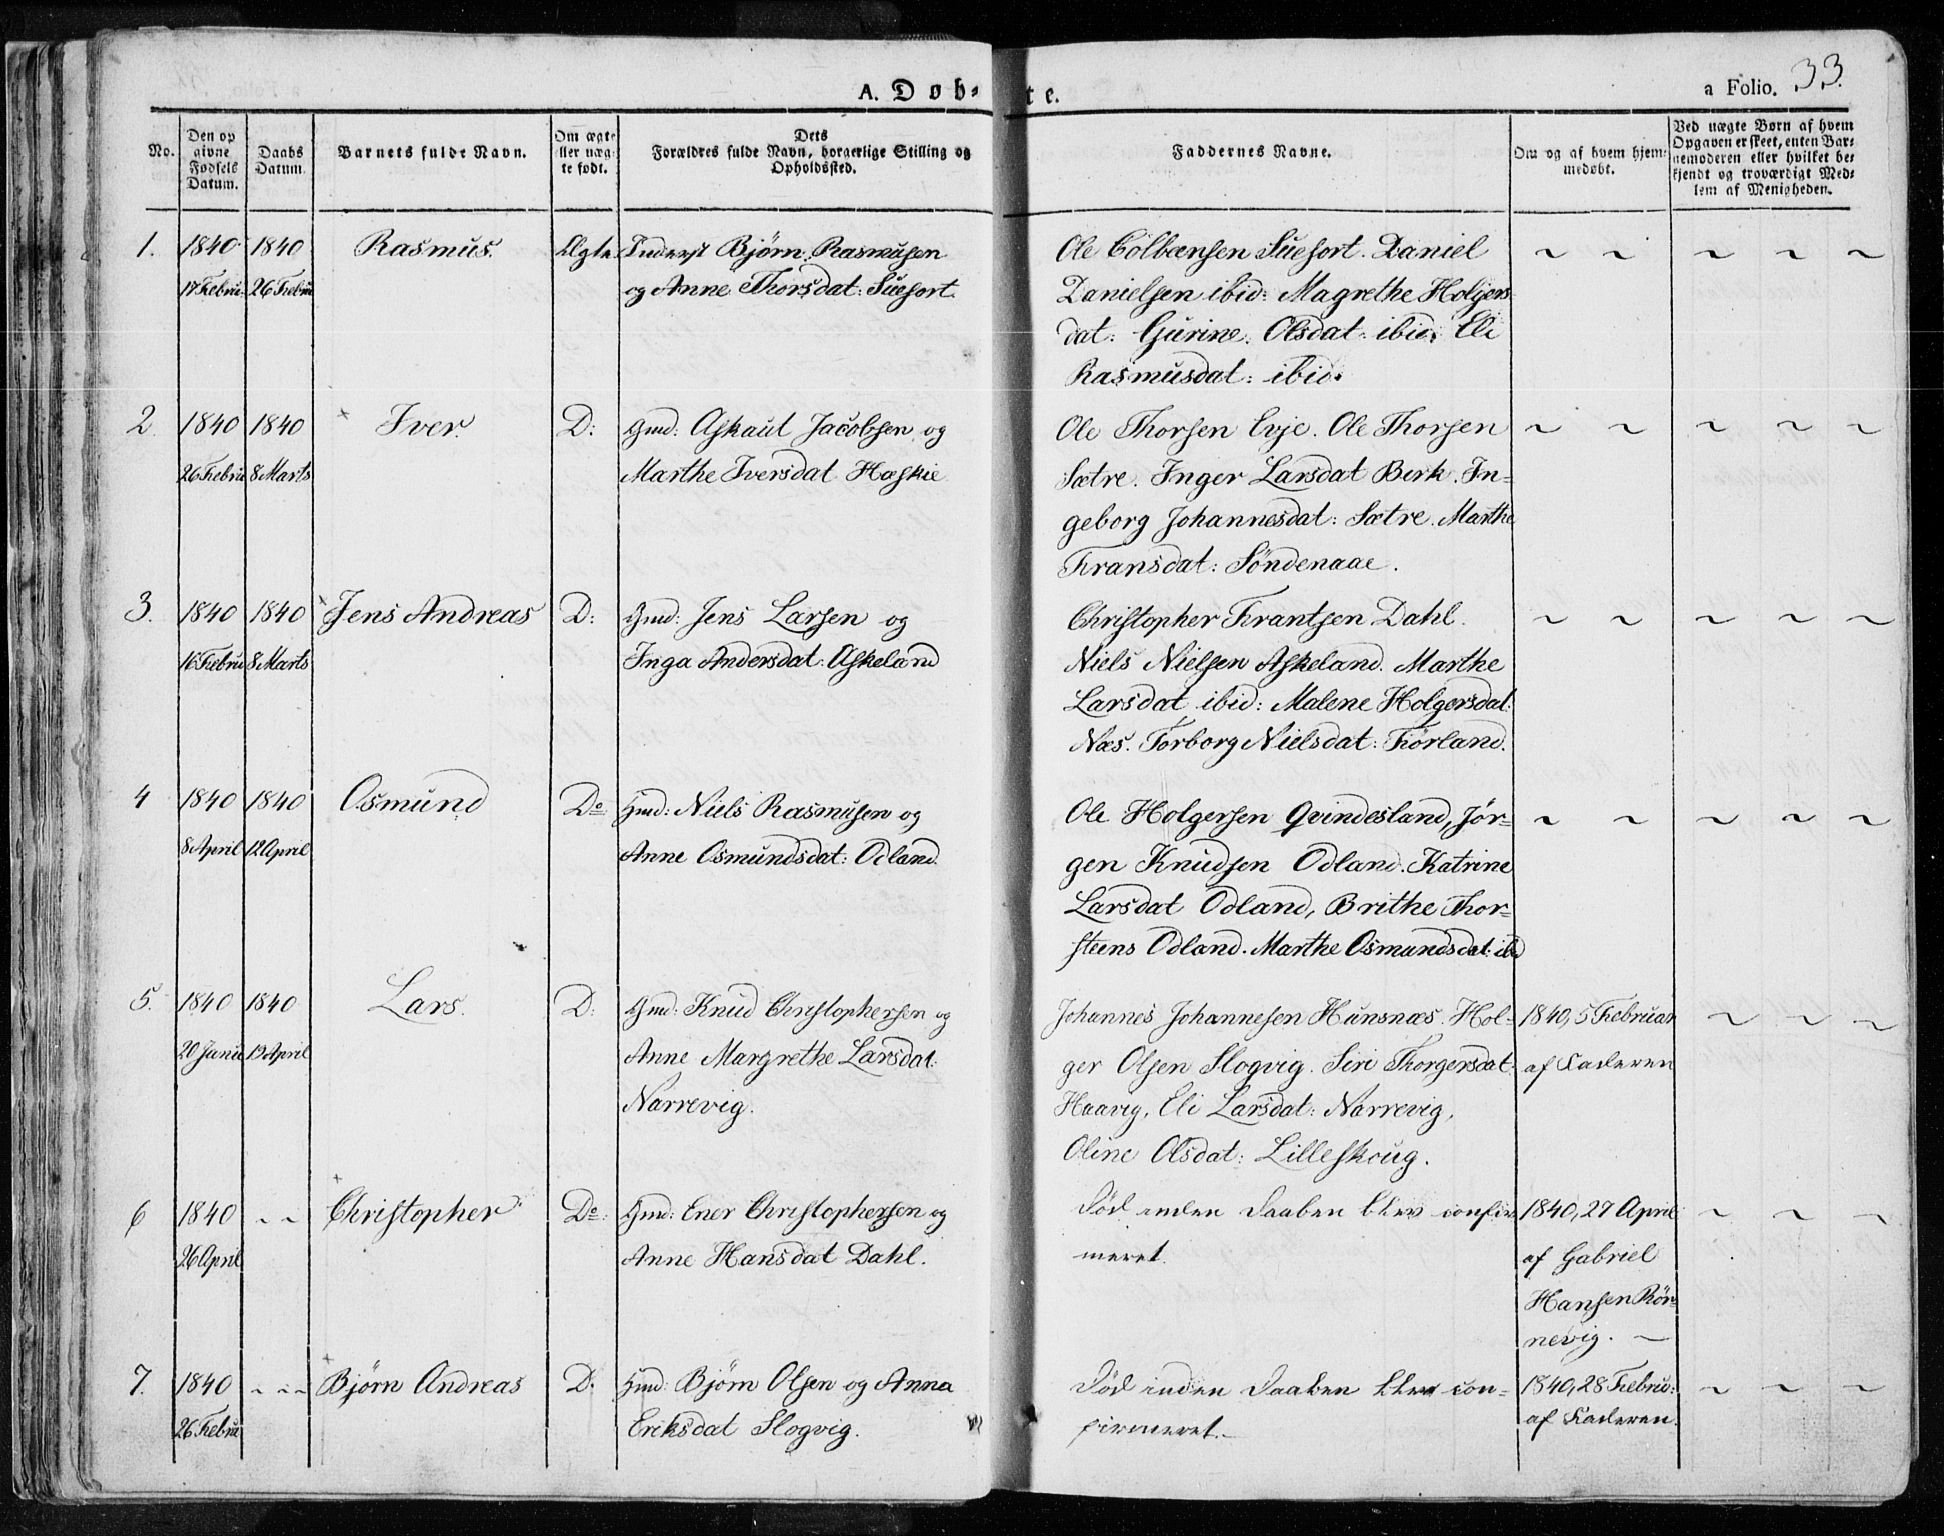 A. Døb- te.
a Folio. 33.
No.
Den op
givne
Fødsels
Datum.
Daabs
Datum.
Barnets fulde Navn.
Om ægte
eller uæg-
te født.
Dets
Forældres fulde Navn, borgerlige Stilling og
Opholdssted.
Faddernes Navne.
Om og af hvem hjem-
medøbt.
Ved uægte Børn af hvem
Opgaven er skeet, enten Bar-
nemoderen eller hvilket be-
kjendt og troværdigt Med-
lem af Menigheden.
1. 1840 1840 Rasmus. Ægte. Inderst Bjørn Rasmusen
17 Febru: 26 Febru
og Anne Thorsdat: Suefort.
Ole Colbænsen Suefort. Daniel ~ ~ ~ ~ ~
Danielsen ibid: Magrethe Holgers
dat: Gurine Olsdat: ibid: Eli
Rasmusdat: ibid:
2 1840 1840 × Iver. D: Gmd: Askaut Jacobsen og
26 Febru 8 Marts
Marthe Iversdat Hæskie
Ole Thorsen Evje. Ole Thorsen ~ ~ ~ ~ ~
Sætre. Inger Larsdat Birk. In-
geborg Johannesdat: Sætre. Marthe
Fransdat: Søndenaae.
3. 1840 1840 × Jens Andreas D: Gmd: Jens Larsen og
16 Febru 8 Marts
Inga Andersdat: Askeland
Christopher Frantsen Dahl. ~ ~ ~ ~ ~
Niels Nielsen Askeland. Marthe
Larsdat ibid: Malene Holgersdat:
Næs. Torborg Nielsdat: Førland.
4 1840 1840 Osmund Do Gmd: Niels Rasmusen og
8 April 12 April
Anne Osmundsdat: Odland.
Ole Holgersen Qvindesland, Jør- ~ ~ ~ ~ ~
gen Knudsen Odland. Katrine
Larsdat Odland, Brithe Thor-
steens Odland. Marthe Osmundsdat: ibd
5. 1840 1840 Lars. D: Gmd: Knud Christophersen og
20 Janu 19 April
Anne Margrethe Larsdat:
Narrevig.
Johannes Johannesen Hunsnæs. Hol- 1840, 5 Februar ~ ~ ~
ger Olsen Slogvig. Siri Thorgersdat: af Faderen
Haavig, Eli Larsdat: Narrevig,
Oline Olsdat: Lilleskoug.
6 1840 - - × Christopher Do: Gmd: Ener Christophersen og
26 April
Anne Hansdat Dahl.
Død inden Daaben blev confir 1840, 27 April ~ ~ ~
meret. af Gabriel
Hansen Rør-
nevig. —
7. 1840 - - - × Bjørn Andreas D. Gmd: Bjørn Olsen og Anna
26 Febru
Eriksdat Slogvig.
Død inden Daaben blev con- 1840, 28 Febru: ~ ~ ~
firmeret.- af Faderen.